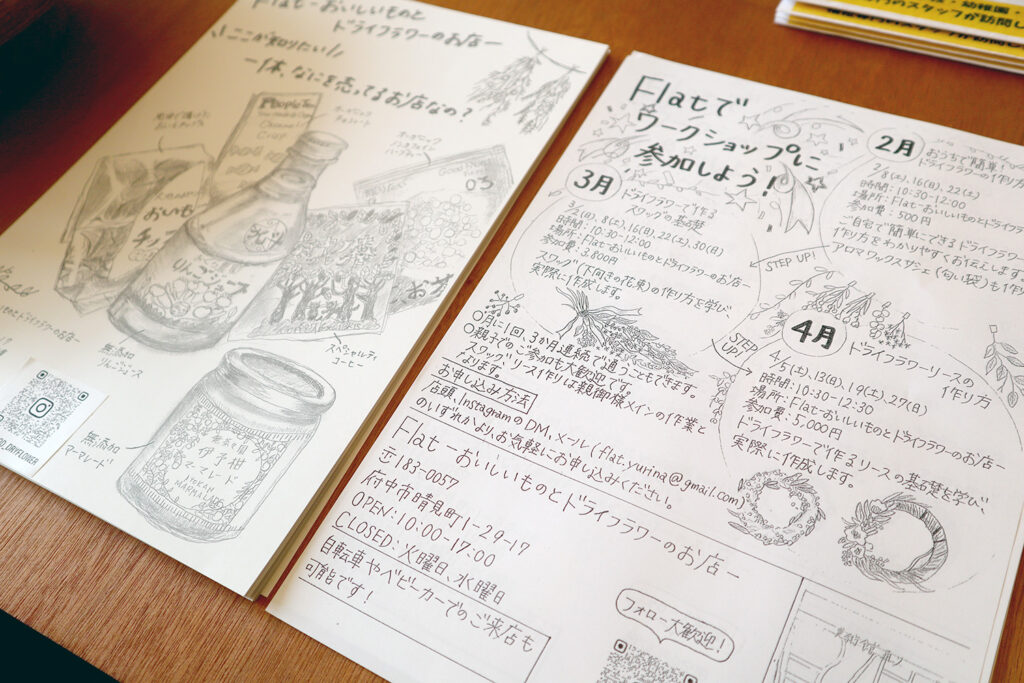 Flat-おいしいものと
ドライフラワーのお店-
\\ここが知りたい//
一体、なにを売ってるお店なの?
People Tree
オーガニック
チョコレート
03
おいも
りんごジュース
無添加
りんごジュース
スペシャルティ
コーヒー
無添加
マーマレード
伊予柑
マーマレード
IYOKAN
MARMALADE
Flatで
ワークショップに
参加しよう!
2月
おうちで簡単!
ドライフラワーの作り方
2/8(土),16(日),22(土)
時間:10:30-12:00
場所:Flat-おいしいものとドライフラワー
参加費:500円
ご自宅で簡単にできるドライフラワー
作り方をわかりやすくお伝えします
アロマワックスサシェ(匂い袋)も作
STEP UP!
3月
ドライフラワーで作る
スワッグの基礎
3/2(日),8(土),16(日),22(土),30(日)
時間:10:30-12:00
場所:Flat-おいしいものとドライフラワーのお店-
参加費:3,800円
スワッグ(下向きの花束)の作り方を学び
実際に作成します。
STEP
UP!
4月
ドライフラワーリースの
作り方
4/5(土),13(日),19(土),27(日)
時間:10:30-12:30
場所:Flat-おいしいものとドライフラワーのお店-
参加費:5,000円
ドライフラワーで作るリースの基礎を学び、
実際に作成します。
○月に1回、3か月連続で通うこともできます。
○親子でのご参加も大歓迎です。
スワッグ、リース作りは親御様メインの作業と
なります。
お申し込み方法
店頭、InstagramのDM、メール(flat.yurina@gmail.com)
のいずれかより、お気軽にお申し込みください。
Flat-おいしいものとドライフラワーのお店-
〒183-0057
府中市晴見町1-29-17
OPEN:10:00-17:00
CLOSED:火曜日、水曜日
自転車やベビーカーでのご来店も
可能です!
フォロー大歓迎!